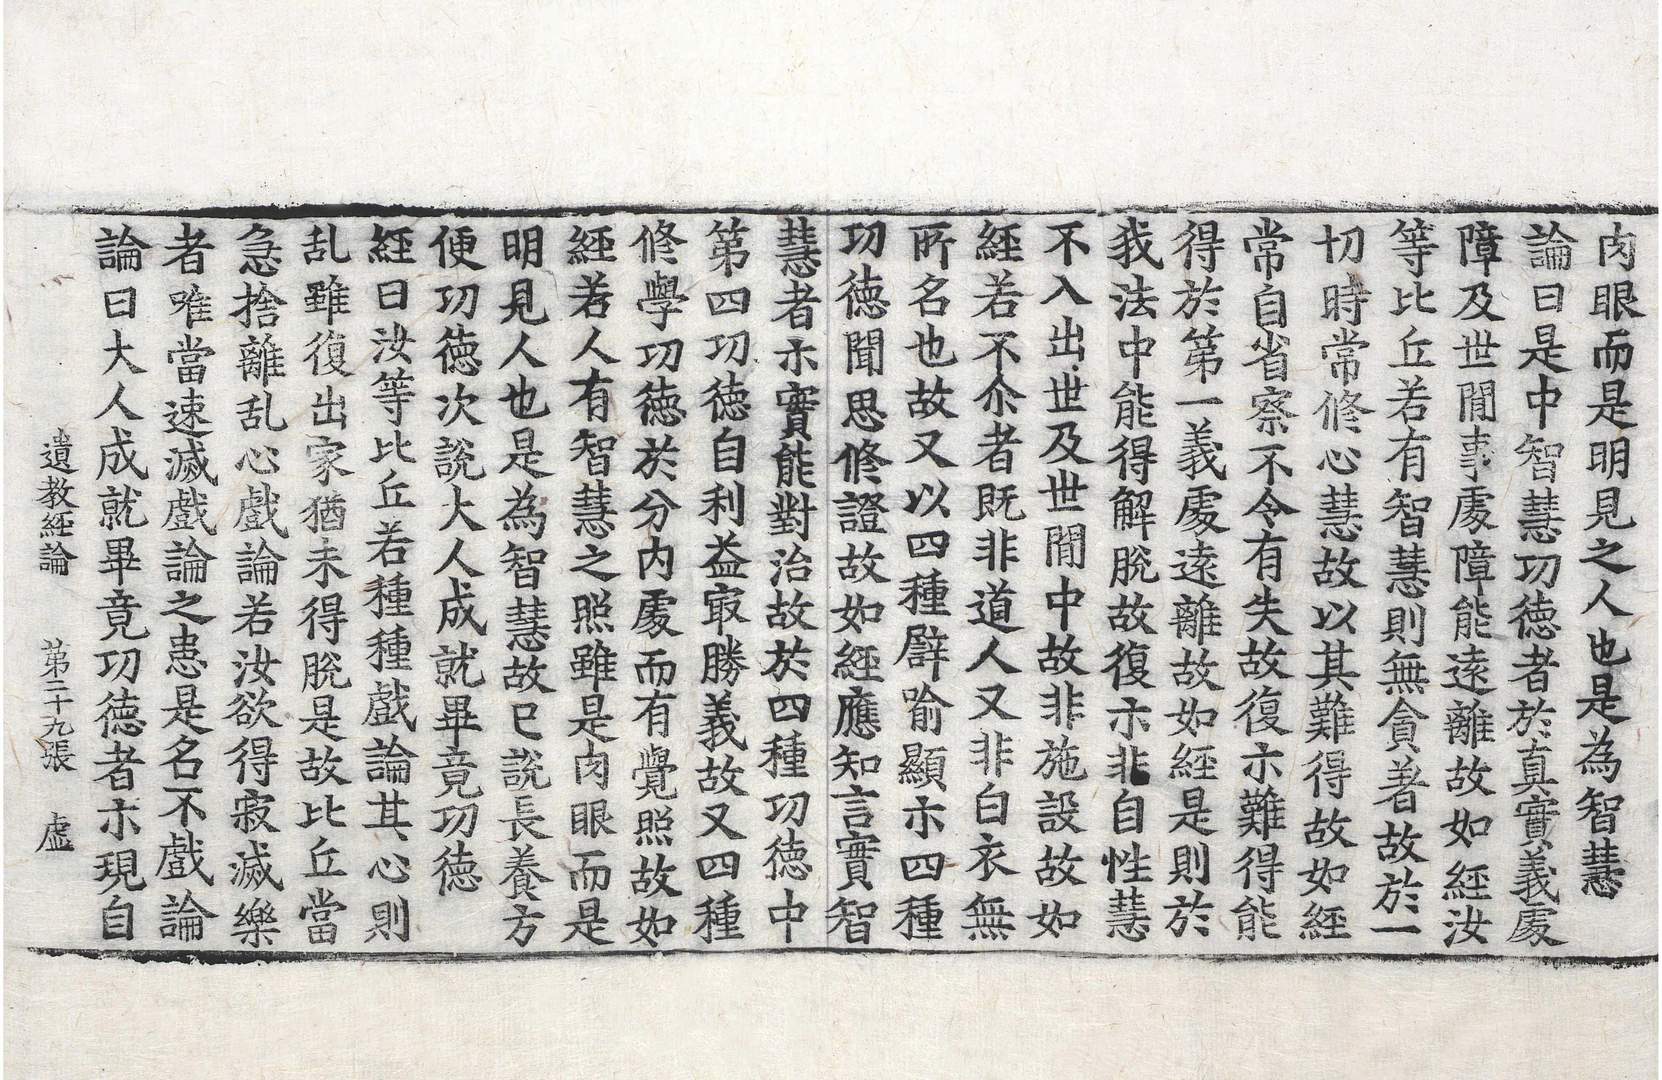 肉眼而是明見之人也是為智慧
論曰是中智慧功德者於真實義處
障及世閒事處障能遠離故如經汝
等比丘若有智慧則無貪著故於一
切時常修心慧故以其難得故如經
常自省察不令有失故復示難得能
得於第一義處遠離故如經是則於
我法中能得解脫故復示非自性慧
不入出世及世閒中故非施設故如
經若不尒者既非道人又非白衣無
所名也故又以四種譬喻顯示四種
功德聞思修證故如經應知言實智
慧者示實能對治故於四種功德中
第四功德自利益㝡勝義故又四種
修學功德於分內處而有覺照故如
經若人有智慧之照雖是肉眼而是
明見人也是為智慧故已說長養方
便功德次說大人成就畢竟功德
經曰汝等比丘若種種戲論其心則
乱雖復出家猶未得脫是故比丘當
急捨離乱心戲論若汝欲得寂滅樂
者唯當速滅戲論之患是名不戲論
論曰大人成就畢竟功德者示現自
遺教經論 第二十九張 虛